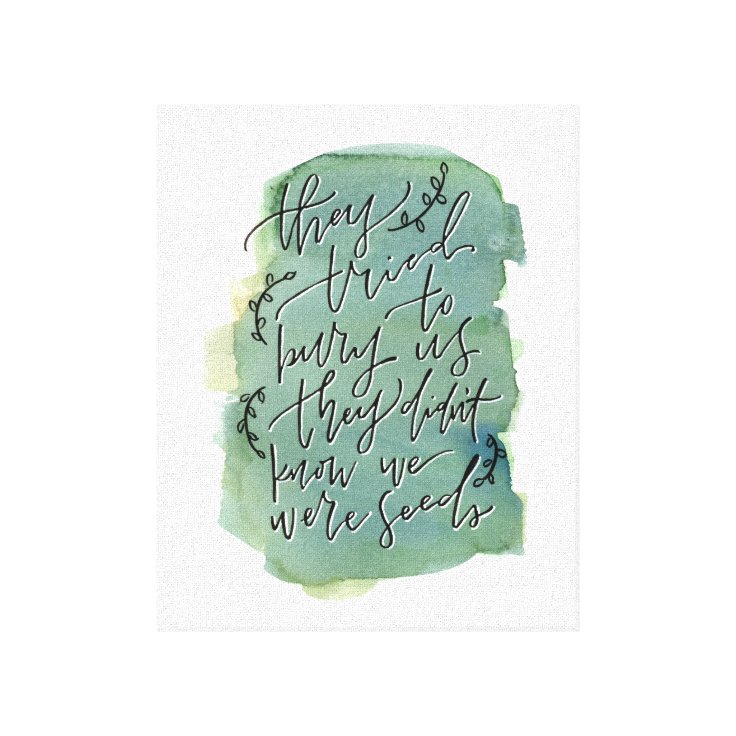 they
tried
to
bury us
they didn't
know we
were seeds